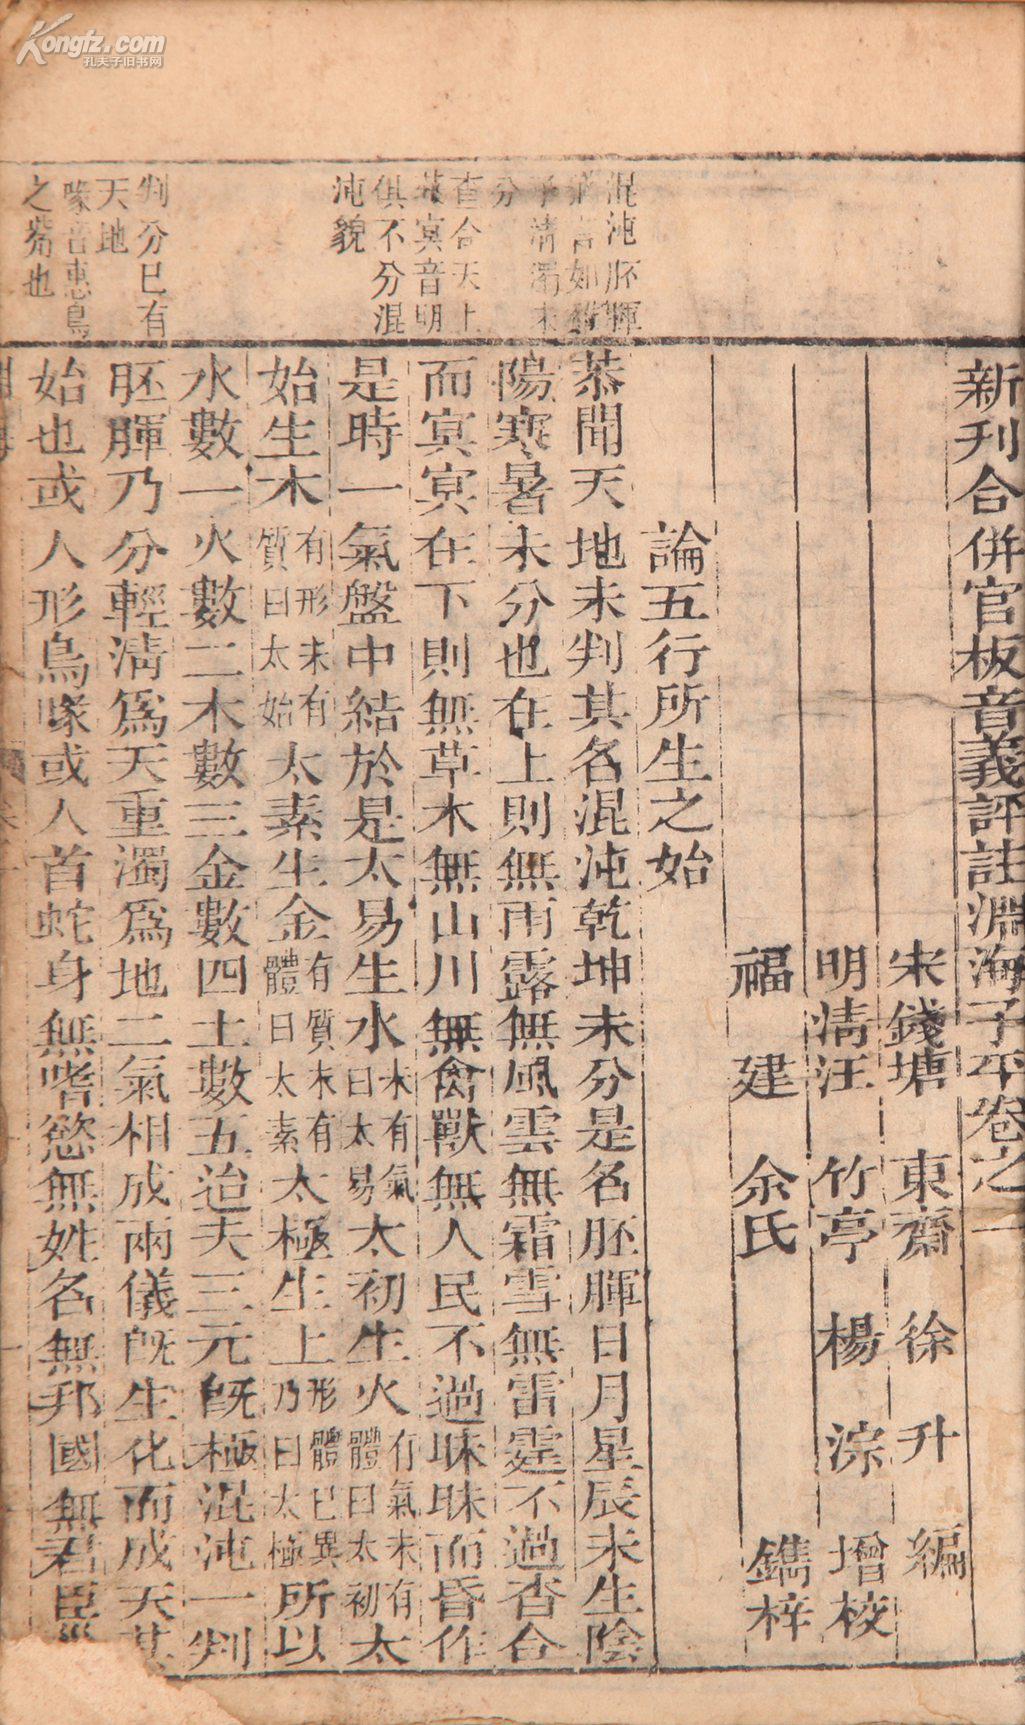 Kongfz.com
孔夫子旧书网
新刋合併官板音義評註淵海子平卷之一
宋錢塘 東齋 徐 升 編
明清江 竹亭 楊 淙 增校
福 建 余氏 鐫梓
論五行所生之始
恭聞天地未判其名混沌乾坤未分是名胚腪日月星辰未生陰
陽寒暑未分也在上則無雨露無風雲無霜雪無雷霆不過杳合
而冥冥在下則無草木無山川無禽獸無人民不過昧昧而昏作
是時一氣盤中結於是太易生水未有氣曰太易太初生火有氣未有體曰太初太
始生木有形未有質曰太始太素生金有質未有體曰太素太極生土形體已異乃曰太極所以
水數一火數二木數三金數四土數五迨夫三元旣極混沌一判
胚腪乃分輕淸爲天重濁爲地二氣相成兩儀旣生化而成天其
始也或人形鳥喙或人首蛇身無嗜慾無姓名無邦國無君臣
混沌胚腪
清濁未
分
杳合天上
冥音明
俱不分混
沌貌
判分已有
天地
喙音惠鳥
之觜也